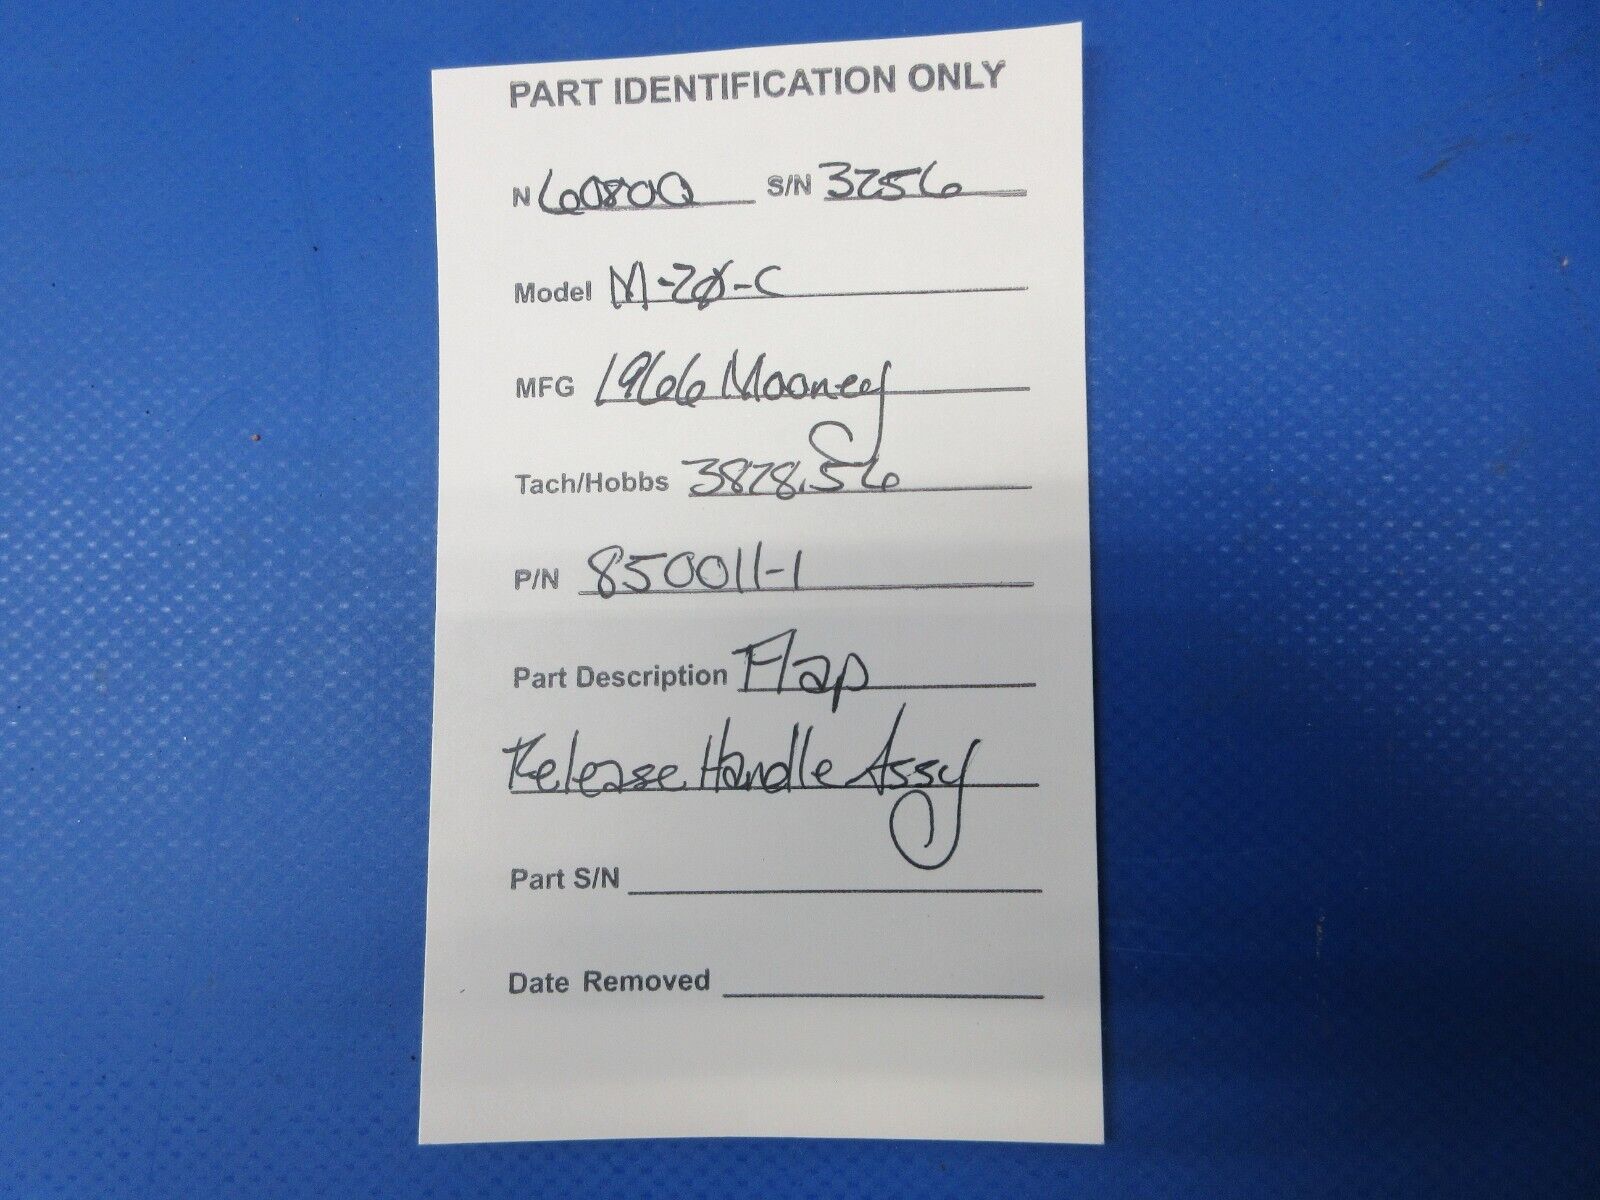 PART IDENTIFICATION ONLY
N 6080Q S/N 3256
Model M-20-C
MFG 1966 Mooney
Tach/Hobbs 3828.56
P/N 850011-1
Part Description Flap
Release Handle Assy
Part S/N
Date Removed